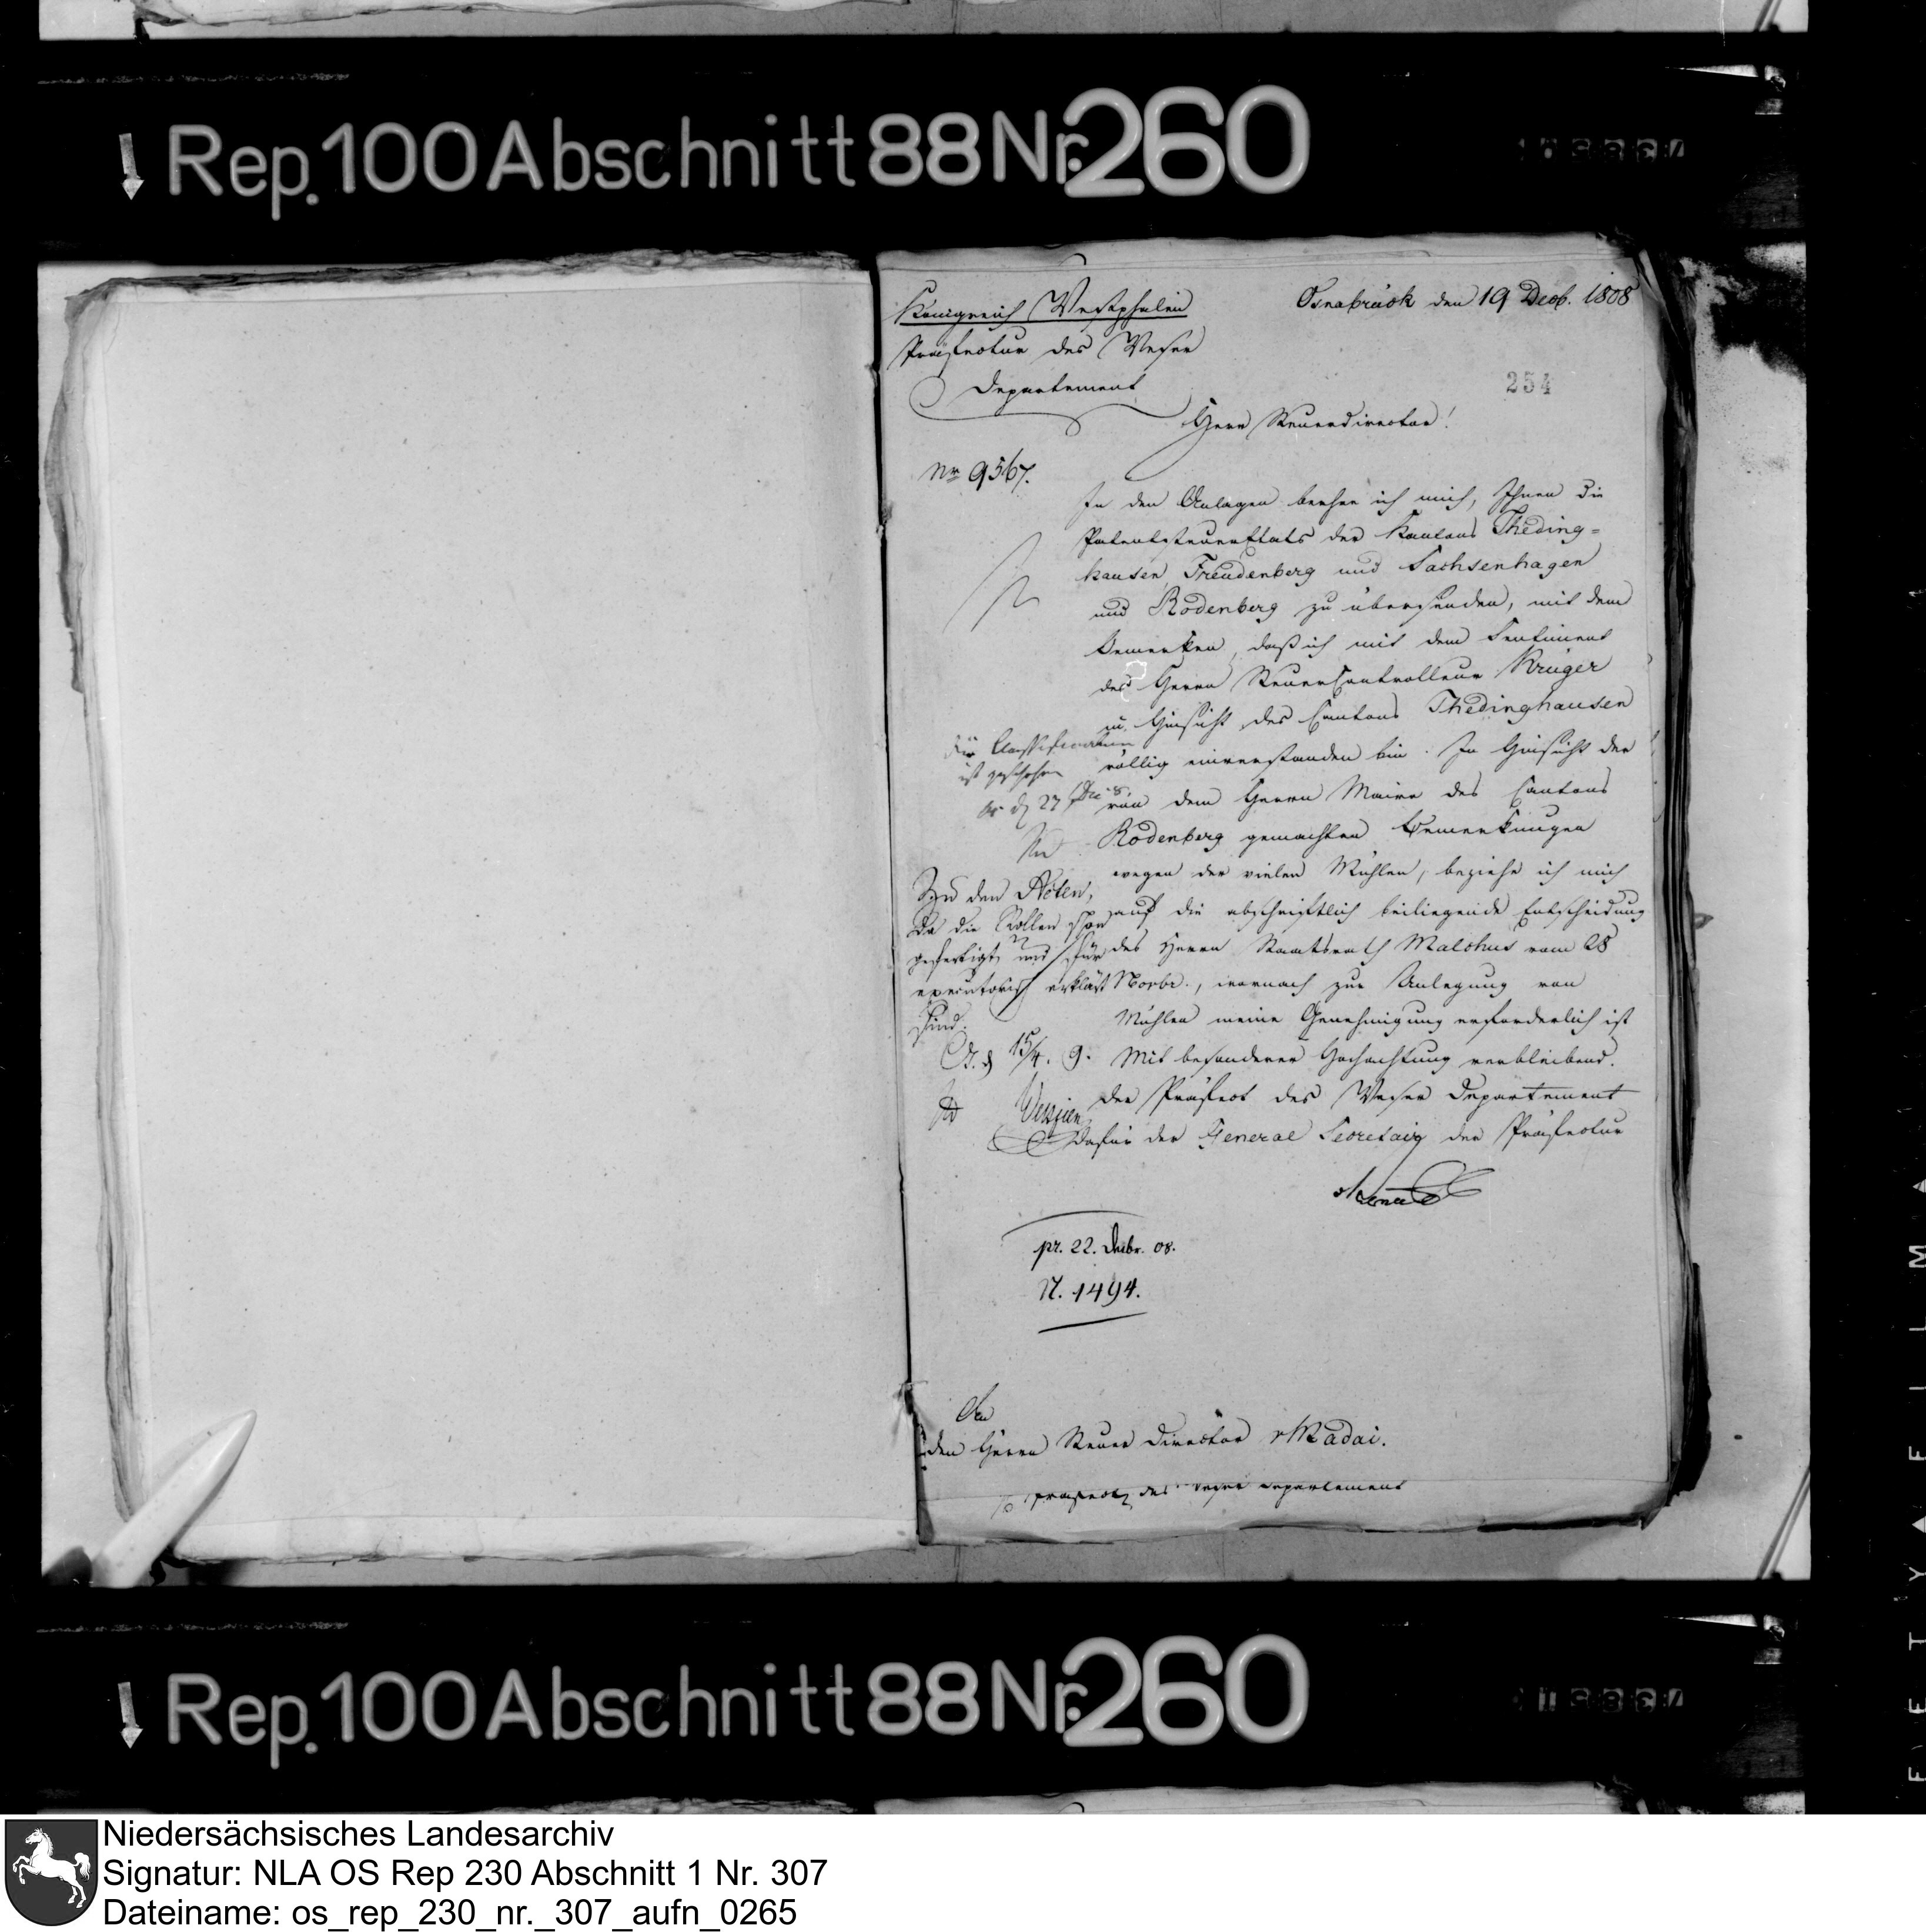 Rep. 100 Abschnitt 88 Nr. 260
Königreich Westphalen
Osnabrück den 19 Decb. 1808
Präfectur des Weser
Departement
254
Herr Steuerdirector!
Nr 9567.
In den Anlagen beehre ich mich, Ihnen die
Patentsteuer Etats der Kantons Theding=
hausen, Freudenberg und Sachsenhagen
und Rodenberg zu übersenden, mit dem
Bemerken, daß ich mit dem Sentiment
des Herrn SteuerControlleur Krüger
in Hinsicht des Cantons Thedinghausen
völlig einverstanden bin. In Hinsicht der
von dem Herrn Maire des Cantons
Rodenberg gemachten Bemerkungen
wegen der vielen Mühlen, beziehe ich mich
auf die abschriftlich beiliegende Entscheidung
des Herrn Staatsrath Malchus vom 28
Novbr., wornach zur Anlegung von
Mühlen meine Genehmigung erforderlich ist
Mit besonderer Hochachtung verbleibend.
Der Präfect des Weser Departement
Dafür der General Secretair der Präfectur
ist geschehen
27
Zu den Acten,
da die Rollen schon
gefertigt und für
executorisch erklärt
sind.
15/4. 9.
pr. 22. Decbr. 08.
N. 1494.
An
den Herrn Steuer Director v Madai.
Präfect des Weser Departement
Rep. 100 Abschnitt 88 Nr. 260
Niedersächsisches Landesarchiv
Signatur: NLA OS Rep 230 Abschnitt 1 Nr. 307
Dateiname: os_rep_230_nr._307_aufn_0265